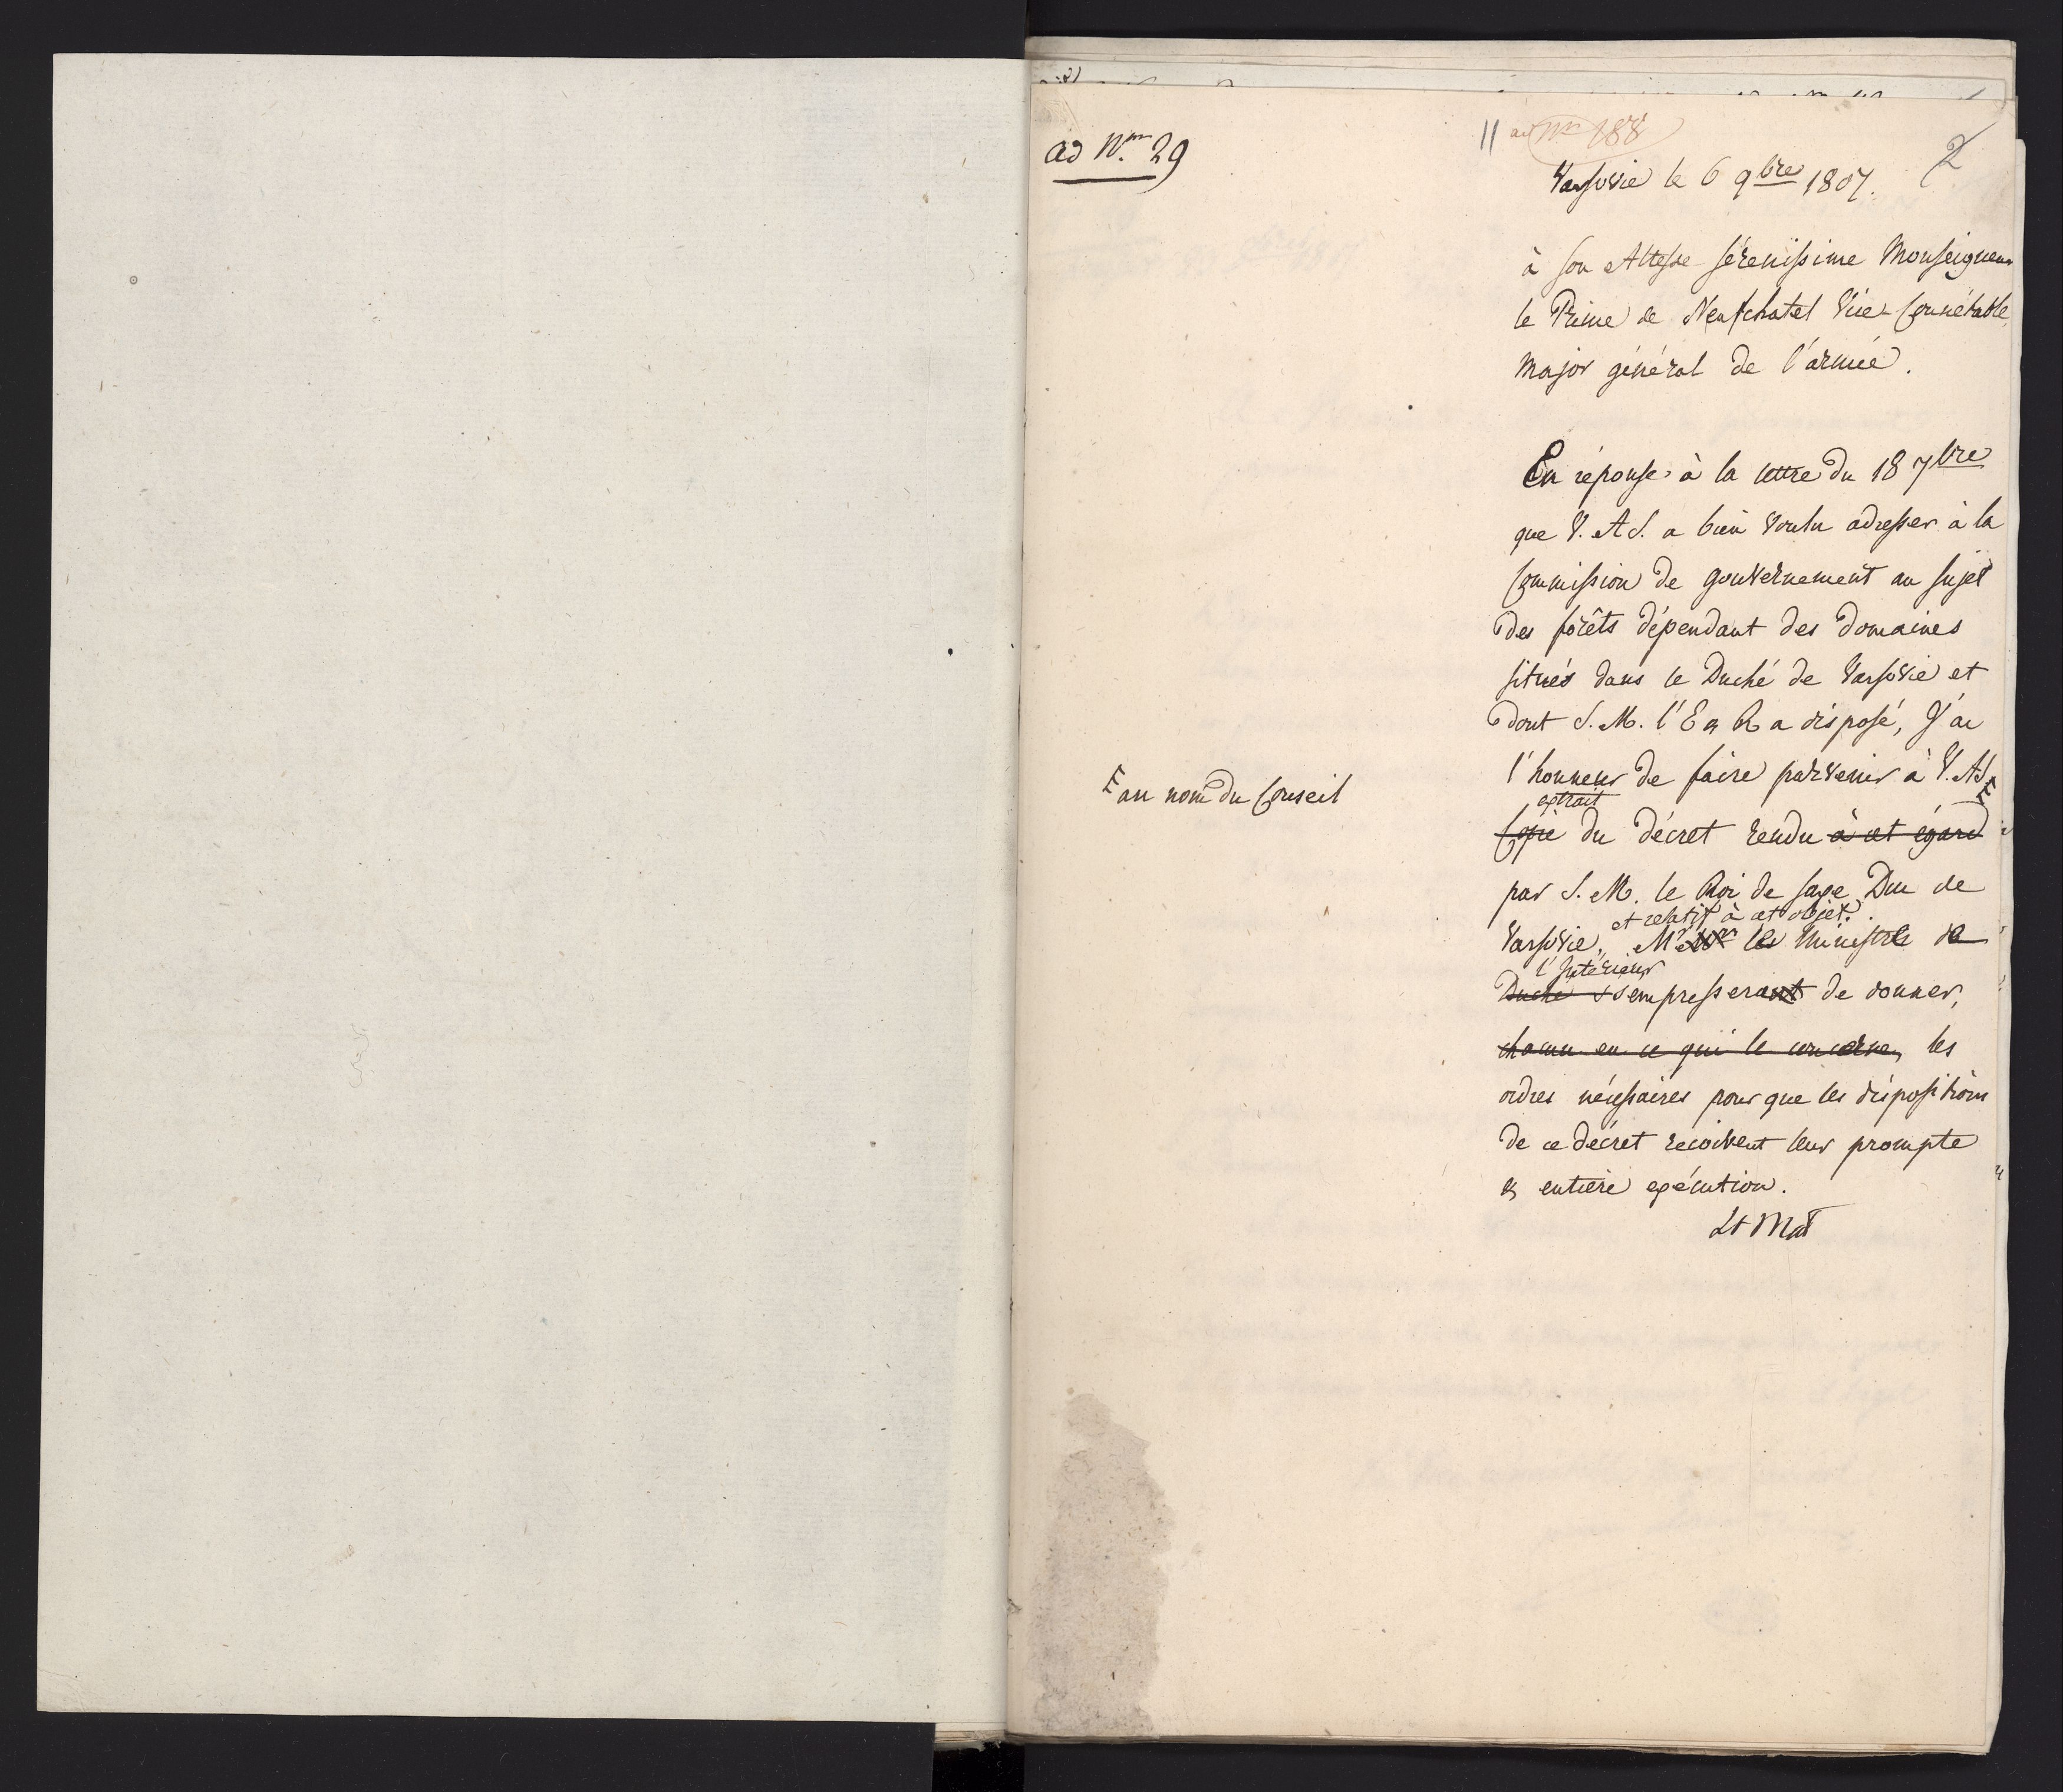 ad N.ᵐ 29
11 ad Nn 188
2
Varsovie le 6 9bre 1807.
à Son Altesse sérenissime Monseigneur
le Prince de Neufchatel Vice-Connétable
Major général de l'armée.
En réponse à la lettre du 18 7bre
que V. A S. a bien voulu adresser à la
Commission de gouvernement au sujet
des forêts dépendant des domaines
situés dans le Duché de Varsovie et
dont S. M. l'E & R a disposé, J'ai
l'honneur de faire parvenir à V. A S
au nom du Conseil
extrait
Copie du décret rendu à cet égard
par S. M. le Roi de Saxe Duc de
et relatif à cet objet.
Varsovie, Mr le Ministre de
l'Intérieur
Duché s'empresserant de donner,
chacun en ce qui le concerne, les
ordres nécessaires pour que les dispositions
de ce décret recoivent leur prompte
& entiere exécution.